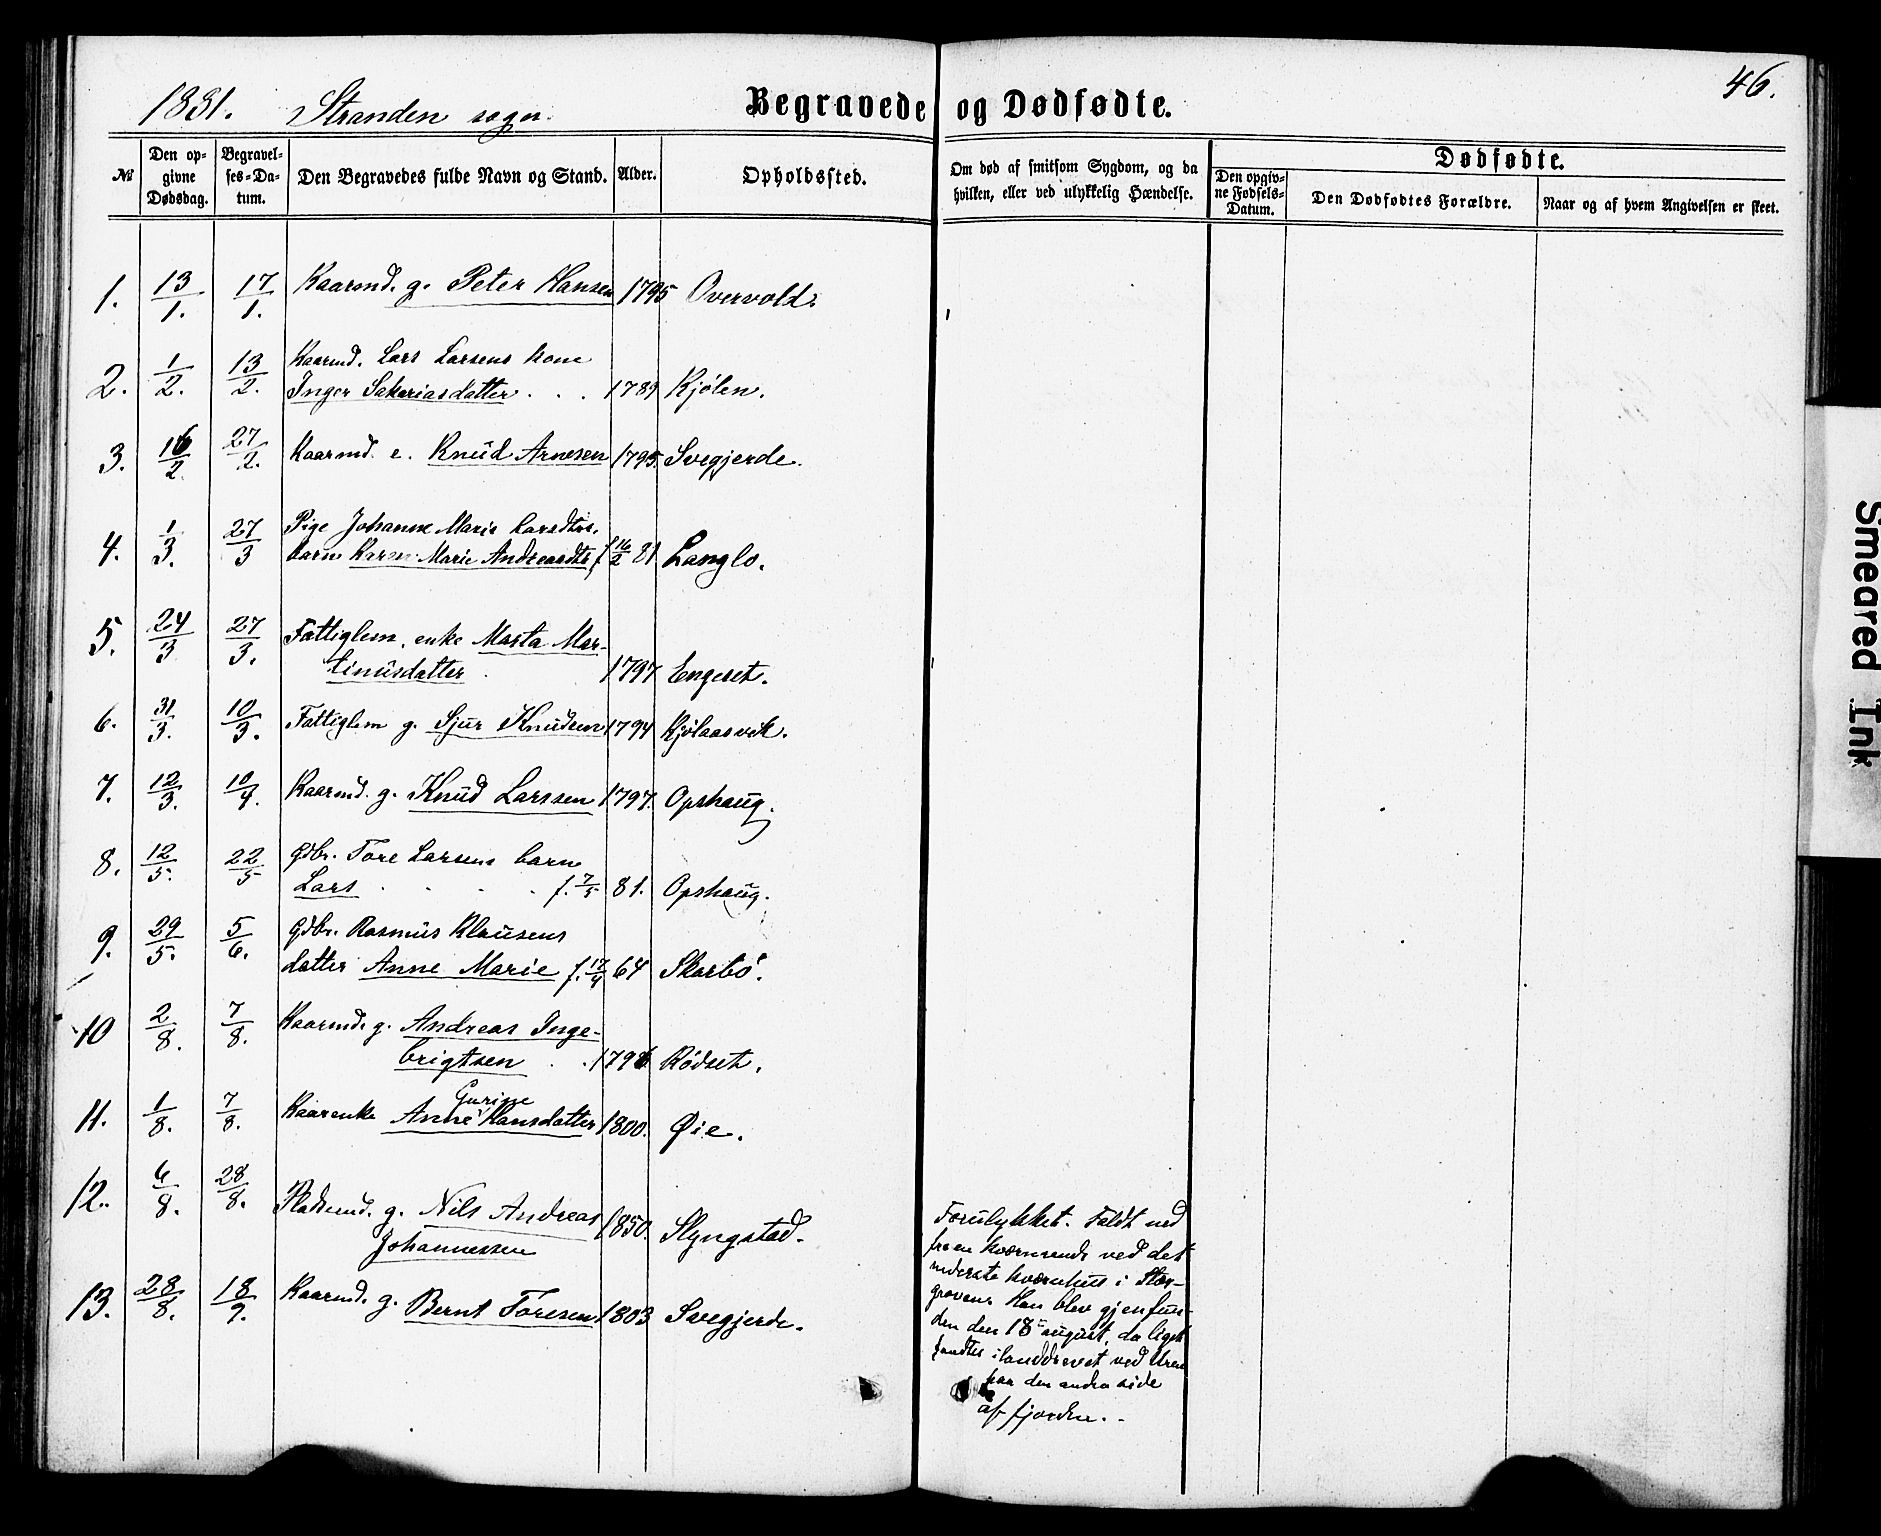 1881. Stranden sogn. Begravede og Dødfødte. 46.
№ Den opgivne Dødsdag. Begravelses-Datum. Den Begravedes fulde Navn og Stand. Alder. Opholdssted. Om død af smitsom Sygdom, og da hvilken, eller ved ulykkelig Hændelse. Dødfødte. Den opgivne Fødsels-Datum. Den Dødfødtes Forældre. Naar og af hvem Angivelsen er skeet.
1. 13/1. 17/1. Kaarmd. g. Peter Hansen 1795 Overvold.
2. 1/2. 13/2. Kaarmd. Lars Larsens kone
Inger Sakariasdatter . . . 1789 Kjølen.
3. 16/2 27/2. Kaarmd. e. Knud Arnesen 1795. Svegjerde.
4. 1/3. 27/3 Pige Johanne Marie Larsdtrs.
barn Karen Marie Andreasdtr f. 16/2 81 Langlo.
5. 24/3 27/3. Fattiglem, enke Marta Mar-
tinusdatter 1797 Engeset.
6. 31/3. 10/3. Fattiglem g. Sjur Knudsen 1794 Kjølaasvik.
7. 12/3. 10/4. Kaarmd. g. Knud Larssen 1797. Opshaug.
8. 12/5. 22/5 Gdbr. Tore Larsens barn
Lars . . . . f. 7/5 81. Opshaug.
9. 29/5. 5/6. Gdbr. Rasmus Klausens
datter Anne Marie f. 17/4 64 Skarbø.
10 2/8. 7/8. Kaarmd. g. Andreas Inge-
brigtsen . . 1796 Rødset.
11. 1/8. 7/8. Kaarenke Anne Gurine Hansdatter 1800. Øie.
12. 6/8. 28/8. Pladsemd. g. Nils Andreas
Johannessen 1850. Slyngstad.
13. 28/8. 18/9. Kaarmd. g. Bernt Toresen 1803 Svegjerde.
Forulykket. Faldt ned
fra en kværnrende ved det
nederste kværnhus i Stor-
groven. Han blev gjenfun-
den den 18 august, da liget
fandtes i landdrevet ved Uren
paa den andre side
af fjorden.
Smeared Ink